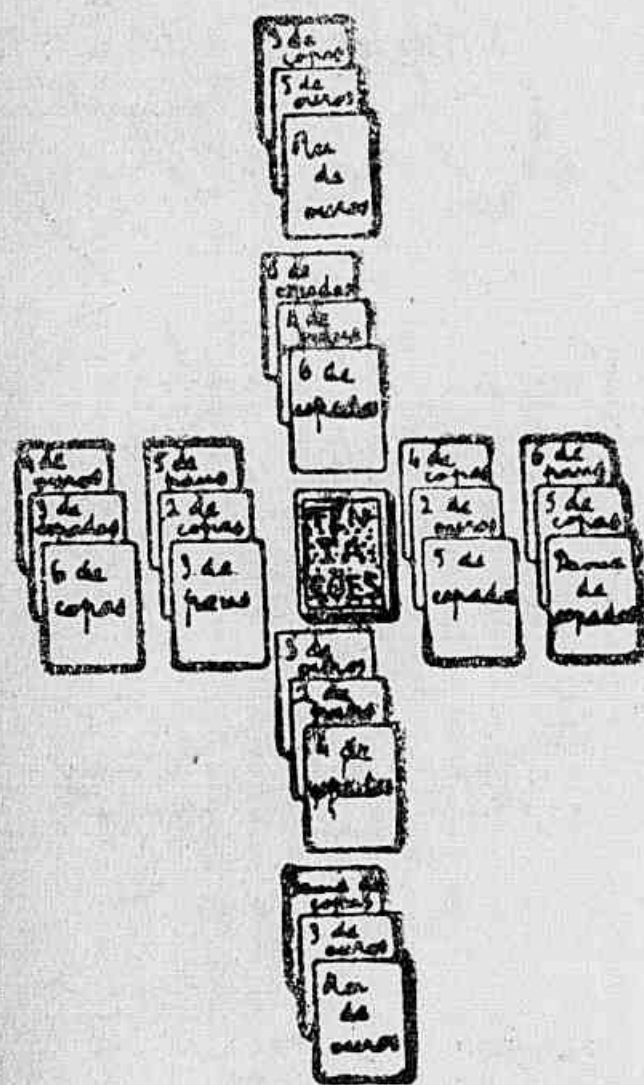 3 de
copas
5 de
ouros
Rei
de
ouros
de
espadas
de
6 de
espadas
4 de
ouros
3 de
espadas
6 de
copas
5 de
paus
2 de
copas
3 de
paus
TEN
TA
ÇÕES
4 de
copas
2 de
ouros
5 de
espadas
6 de
paus
5 de
copas
Dama
de
espadas
3 de
ouros
2 de
4 de
espadas
Dama de
copas
3 de
ouros
Rei
de
ouros